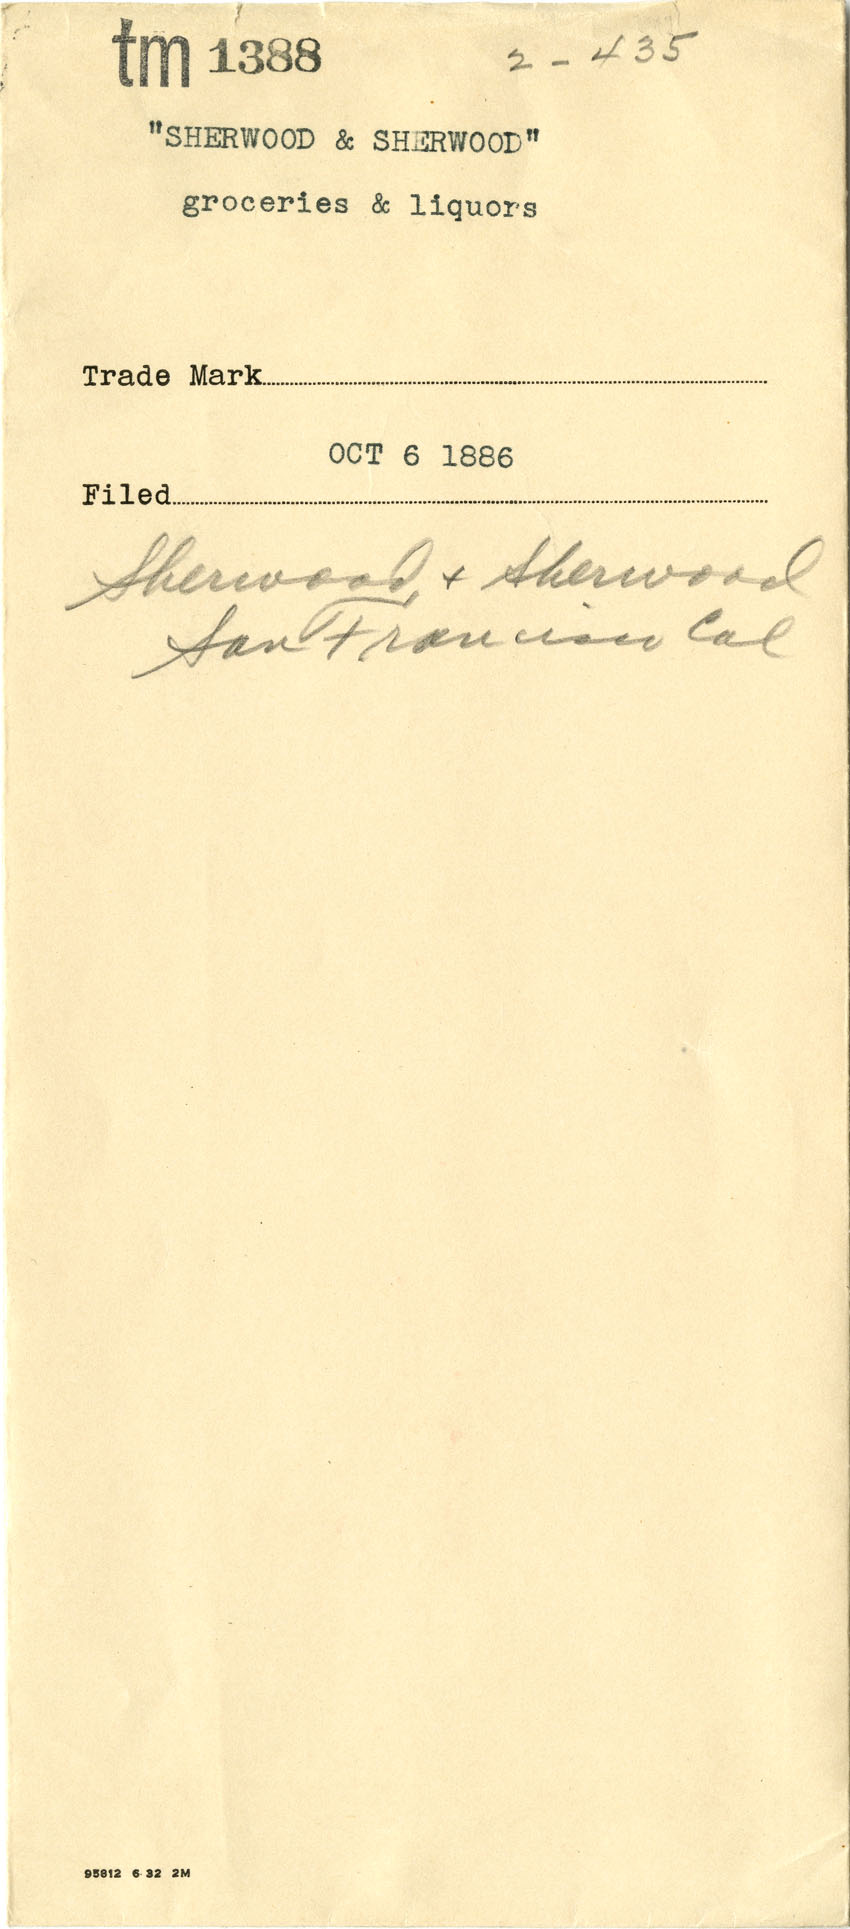 tm 1388 2-435
"SHERWOOD & SHERWOOD"
groceries & liquors
Trade Mark
OCT 6 1886
Filed
Sherwood & Sherwood
San Francisco Cal
95812 6-32 2M